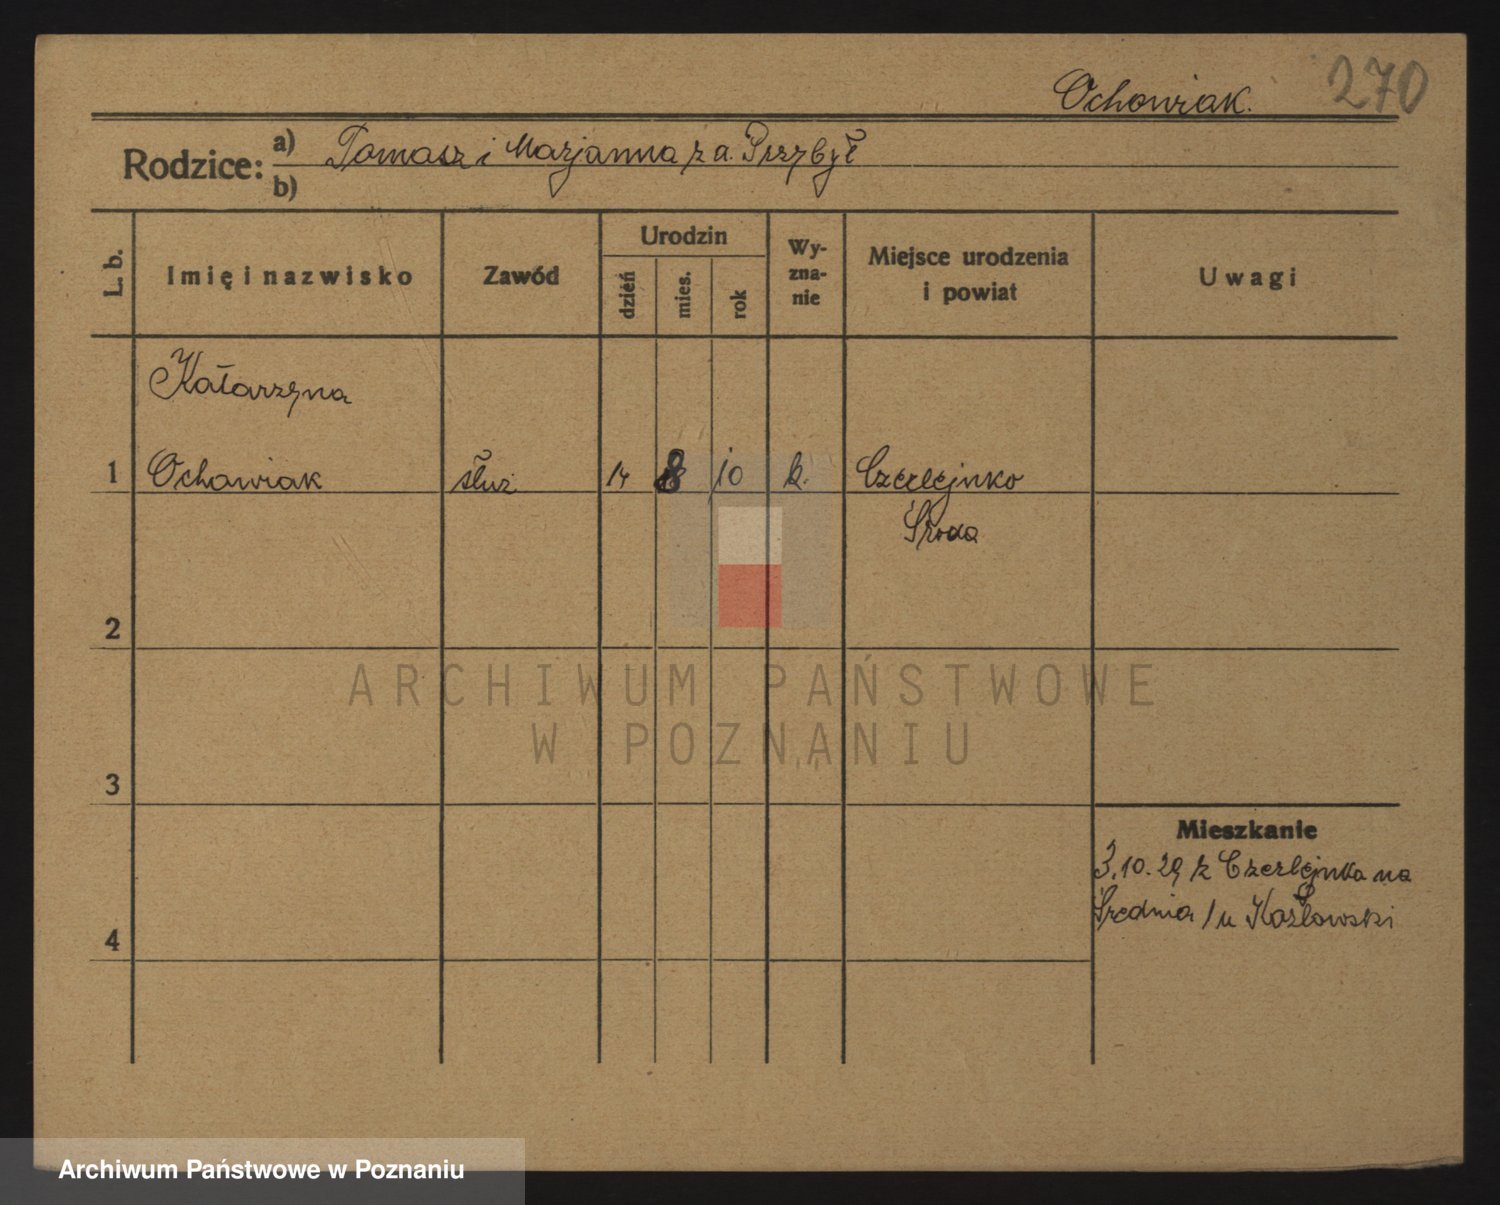 Ochowiak.
270
Rodzice: a) Tomasz i Marjanna z d. Przybył
b)
L. b.
Imię i nazwisko
Zawód
Urodzin
dzień
mies.
rok
Wy-
zna-
nie
Miejsce urodzenia
i powiat
Uwagi
Katarzyna
1 Ochowiak służ. 14 8 10 k. Czerlejnko
Środa
2
ARCHIWUM PAŃSTWOWE
W POZNANIU
3
Mieszkanie
3.10.29 z Czerlejnka na
4 Średnia 1 u Kozłowski
Archiwum Państwowe w Poznaniu